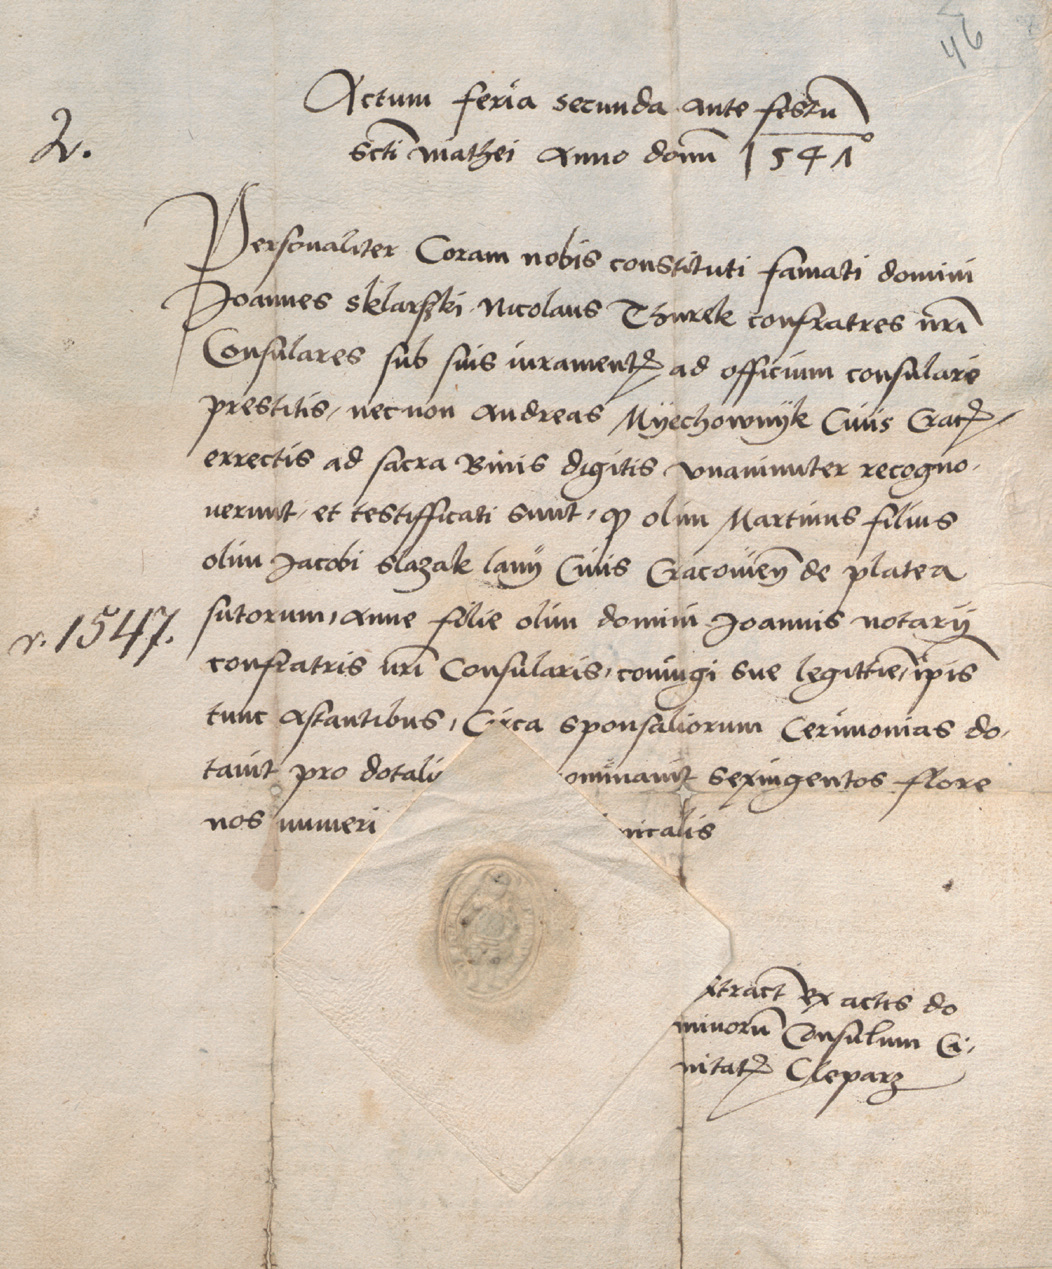 46
Actum feria secunda ante festū
2.
scti mathei Anno domī 1541°
Personaliter Coram nobis constituti famati domini
Joannes Sklarsski Nicolaus Thurek confratres nrī
Consulares sub suis iuramentꝭ ad officium consulare
prestitis, necnon Andreas Myechownÿk Ciuis Cracꝭ
errectis ad sacra Binis digitis vnanimiter recogno,
uerunt, et testifficati sunt, ꝙ olim Martinus filius
olim Jacobi Slazak lanÿ Ciuis Cracouieñ de platea
sutorum, Anne filie olim domini Joannis notarÿ
v. 1547.
confratris nrī Consularis, coniugi sue legittīe, ipīs
tunc astantibus, Circa sponsaliorum Cerimonias do,
tauit pro dotali ominauit sexingentos flore
nos numeri nicalis
xtract ex actis do
minorū Consulum Ci,
uitatꝭ Cleparz